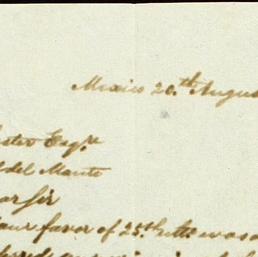 Mexico 20.th Augus
ster Esqre
del Monte
ar Sir
our favor of 25th ulto. was